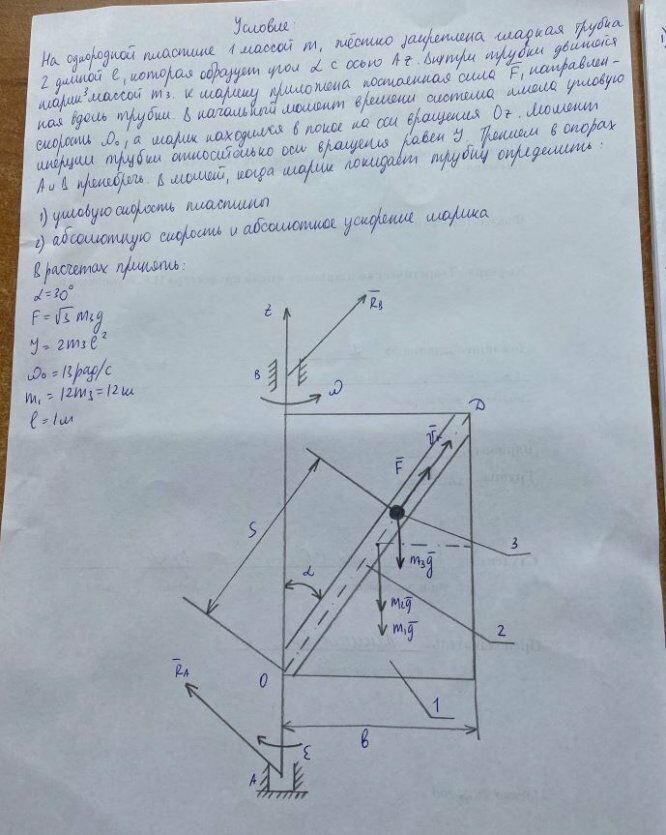 Условие:
На однородной пластине 1 массой m, жёстко закреплена гладкая трубка
2 длиной l, которая образует угол α с осью Az. Внутри трубки движется
шарик 3 массой m3. К шарику приложена постоянная сила F, направлен-
ная вдоль трубки. В начальный момент времени система имела угловую
скорость ω0, а шарик находился в покое на оси вращения Oz. Момент
инерции трубки относительно оси вращения равен J. Трением в опорах
A и B пренебречь. В момент, когда шарик покидает трубку определить:
1) угловую скорость пластины
2) абсолютную скорость и абсолютное ускорение шарика
В расчетах принять:
α=30°
F=√3 m3g
J=2m3l²
ω0=13рад/с
m1=12m3=12m
l=1м
z
R̄B
B
ω
D
V̄r
F̄
S
α
3
m3ḡ
m2ḡ
m1ḡ
2
O
R̄A
1
в
ε
A